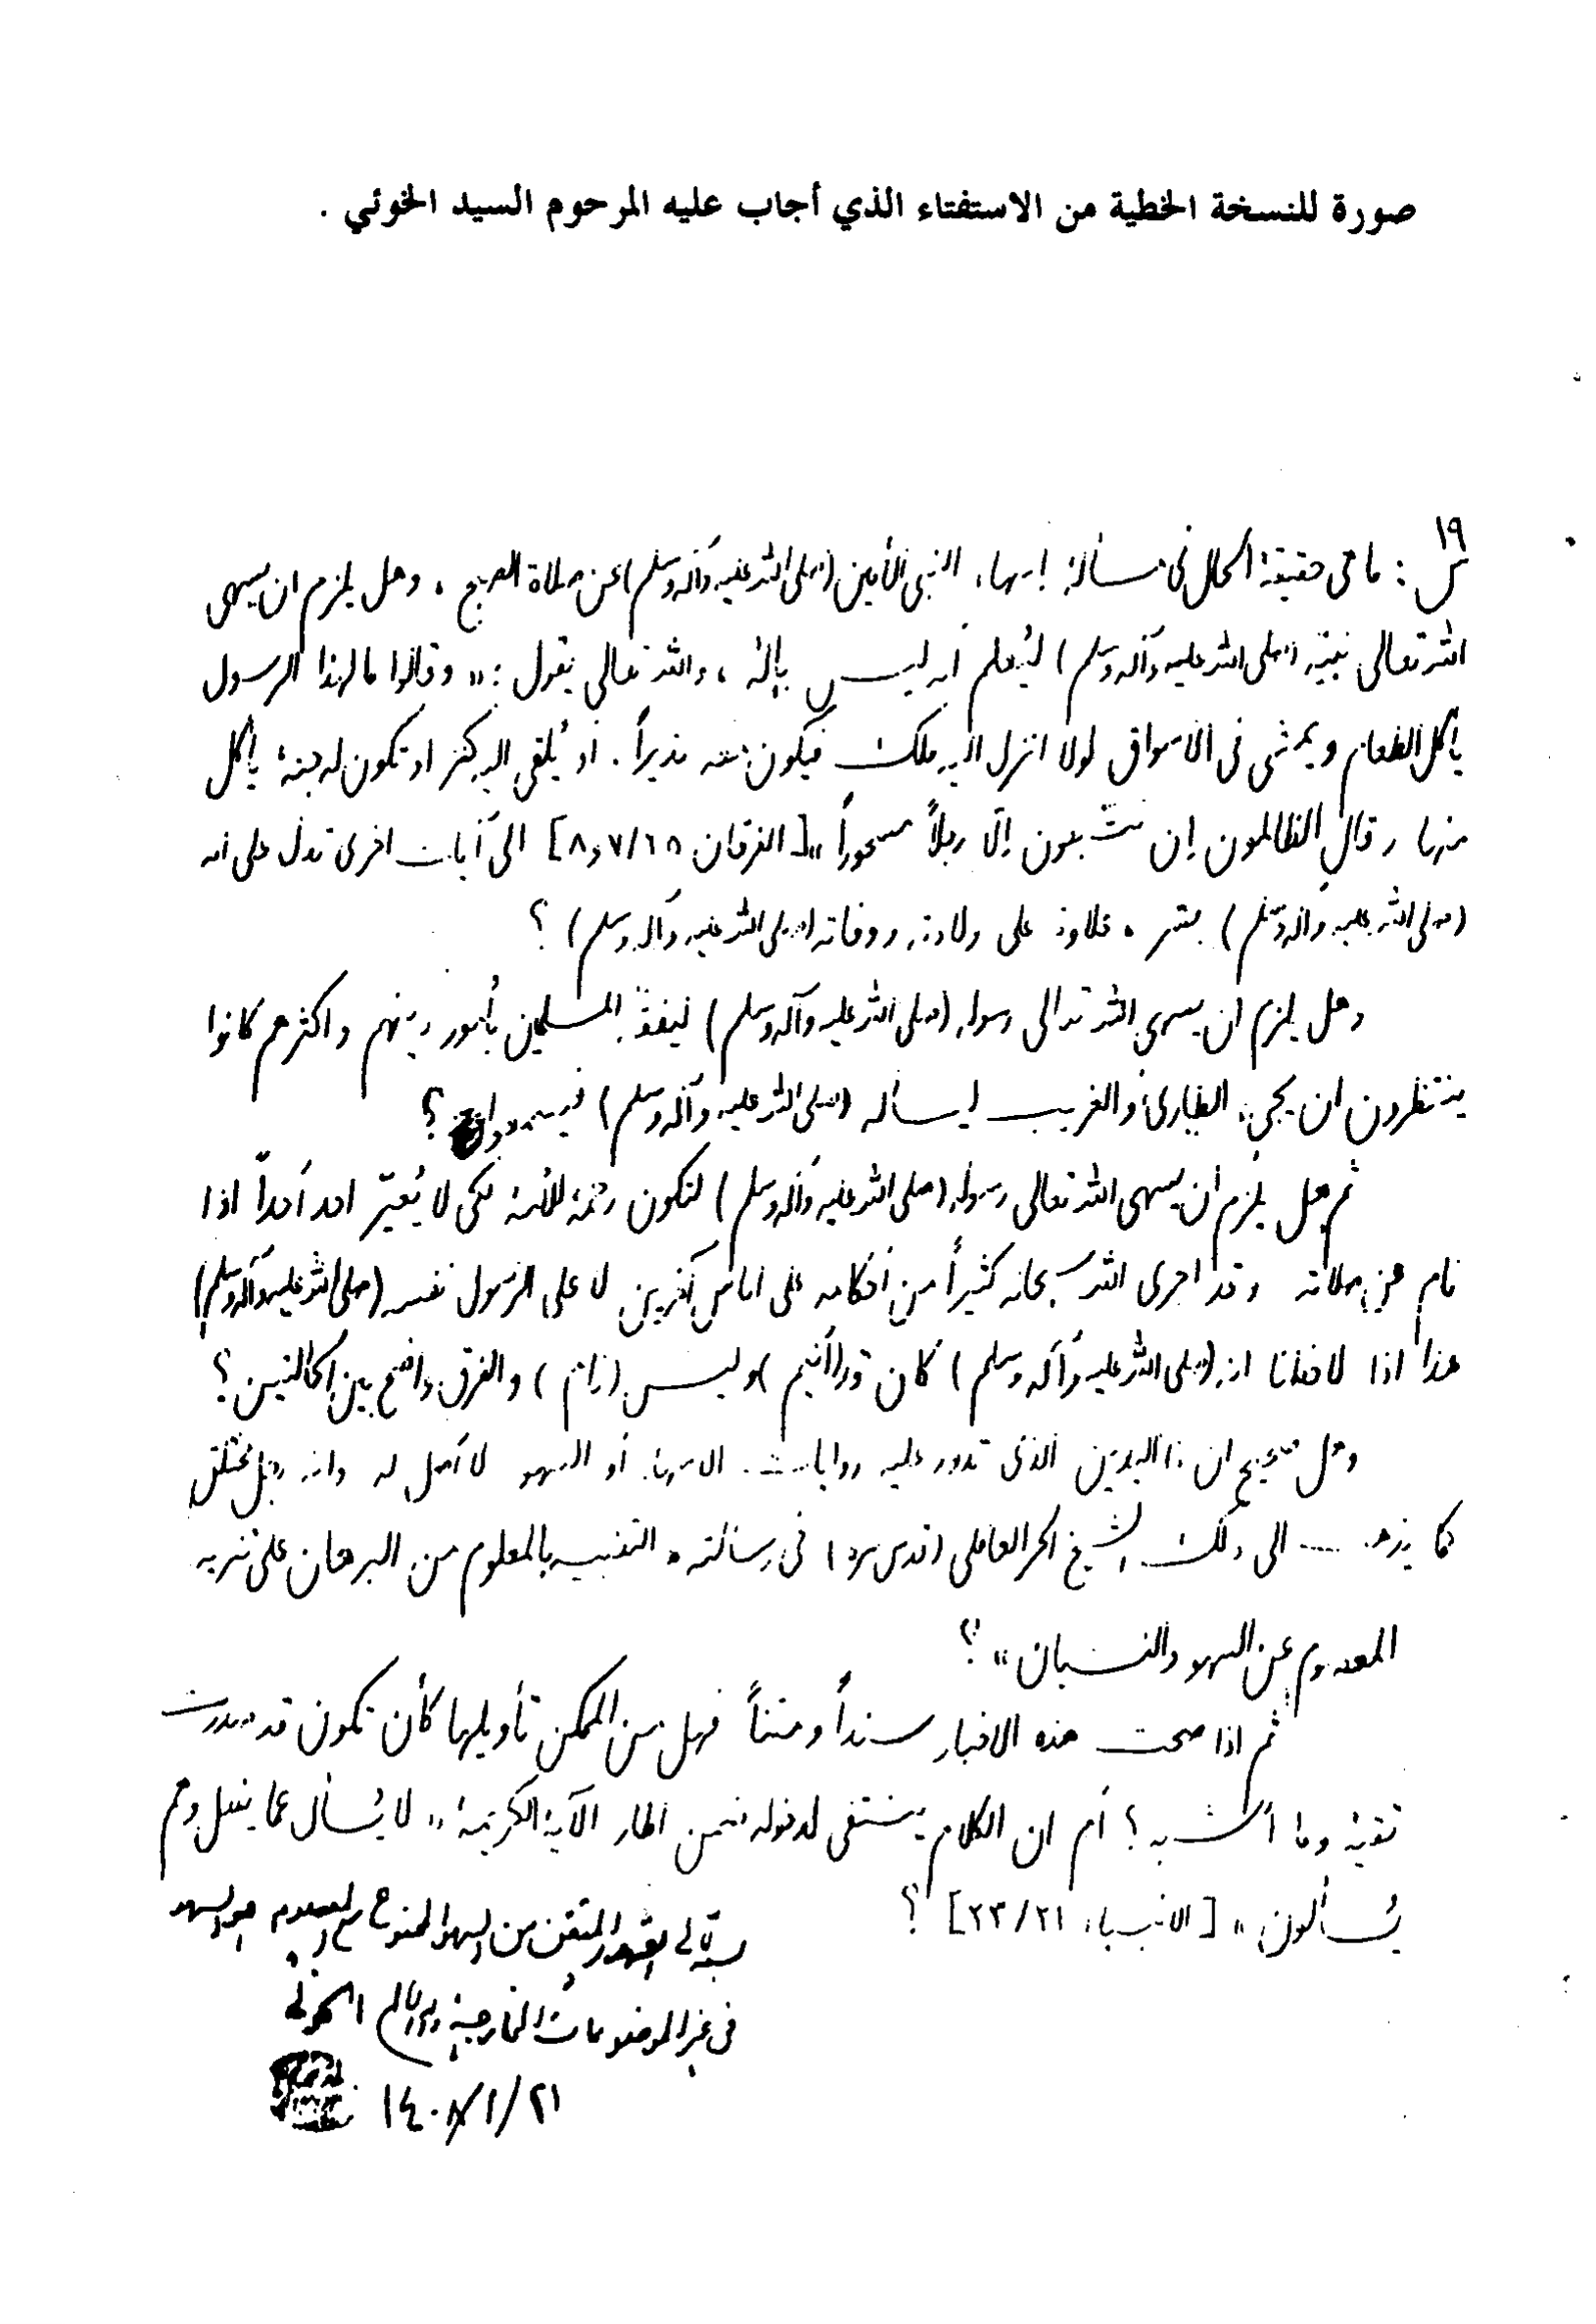 صورة للنسخة الخطية من الاستفتاء الذي أجاب عليه المرحوم السيد الخوئي .
١٩
س : ما هي حقيقة الحال في مسألة إسهاء النبي الأمين (صلى الله عليه وآله وسلم) عن صلاة الصبح ، وهل يلزم ان يسهي
الله تعالى نبيّه (صلى الله عليه وآله وسلم) ليُعلم أنه ليس بإله ، والله تعالى يقول : « وقالوا ما لهذا الرسول
يأكل الطعام ويمشي في الاسواق لولا انزل اليه ملك فيكون معه نذيراً . أو يُلقى اليه كنز او تكون له جنة يأكل
منها وقال الظالمون إن تتّبعون إلّا رجلاً مسحوراً » [الفرقان ٢٥/ ٧ و٨] الى آيات اخرى تدل على انه
(صلى الله عليه وآله وسلم) بشر ، علاوة على ولادته ووفاته (صلى الله عليه وآله وسلم) ؟
وهل يلزم ان يسهي الله تعالى رسوله (صلى الله عليه وآله وسلم) ليفقّه المسلمين بأمور دينهم واكثرهم كانوا
ينتظرون ان يجيء الطارئ والغريب ليسأله (صلى الله عليه وآله وسلم) ؟
ثم هل يلزم ان يسهي الله تعالى رسوله (صلى الله عليه وآله وسلم) لتكون رحمة للأمة لكي لا يُعيّر احد أحداً اذا
نام عن صلاته وقد اجرى الله سبحانه كثيراً من أحكامه على اناس آخرين لا على الرسول نفسه (صلى الله عليه وآله وسلم)
هذا اذا لاحظنا انه (صلى الله عليه وآله وسلم) كان قد (أنيم) وليس (نام) والفرق واضح بين الحالتين ؟
وهل صحيح ان ذا اليدين الذي تدور عليه روايات الاسهاء أو السهو لا أصل له وانه رجل مختلق
كما يذهب الى ذلك الشيخ الحر العاملي (قدس سره) في رسالته « التنبيه بالمعلوم من البرهان على تنزيه
المعصوم عن السهو والنسيان » ؟
ثم اذا صحت هذه الاخبار سنداً ومتناً فهل من الممكن تأويلها كأن تكون قد صدرت
تقية وما أشبه ؟ أم ان الكلام ينتفي لدخوله ضمن اطار الآية الكريمة « لا يُسأل عما يفعل وهم
يُسألون » [الانبياء ٢١/ ٢٣] ؟
القدر المتيقن من السهو الممنوع على المعصوم هو السهو
في غير الموضوعات الخارجية والله العالم الخوئي
٢١ / ١ / ١٤٠٨